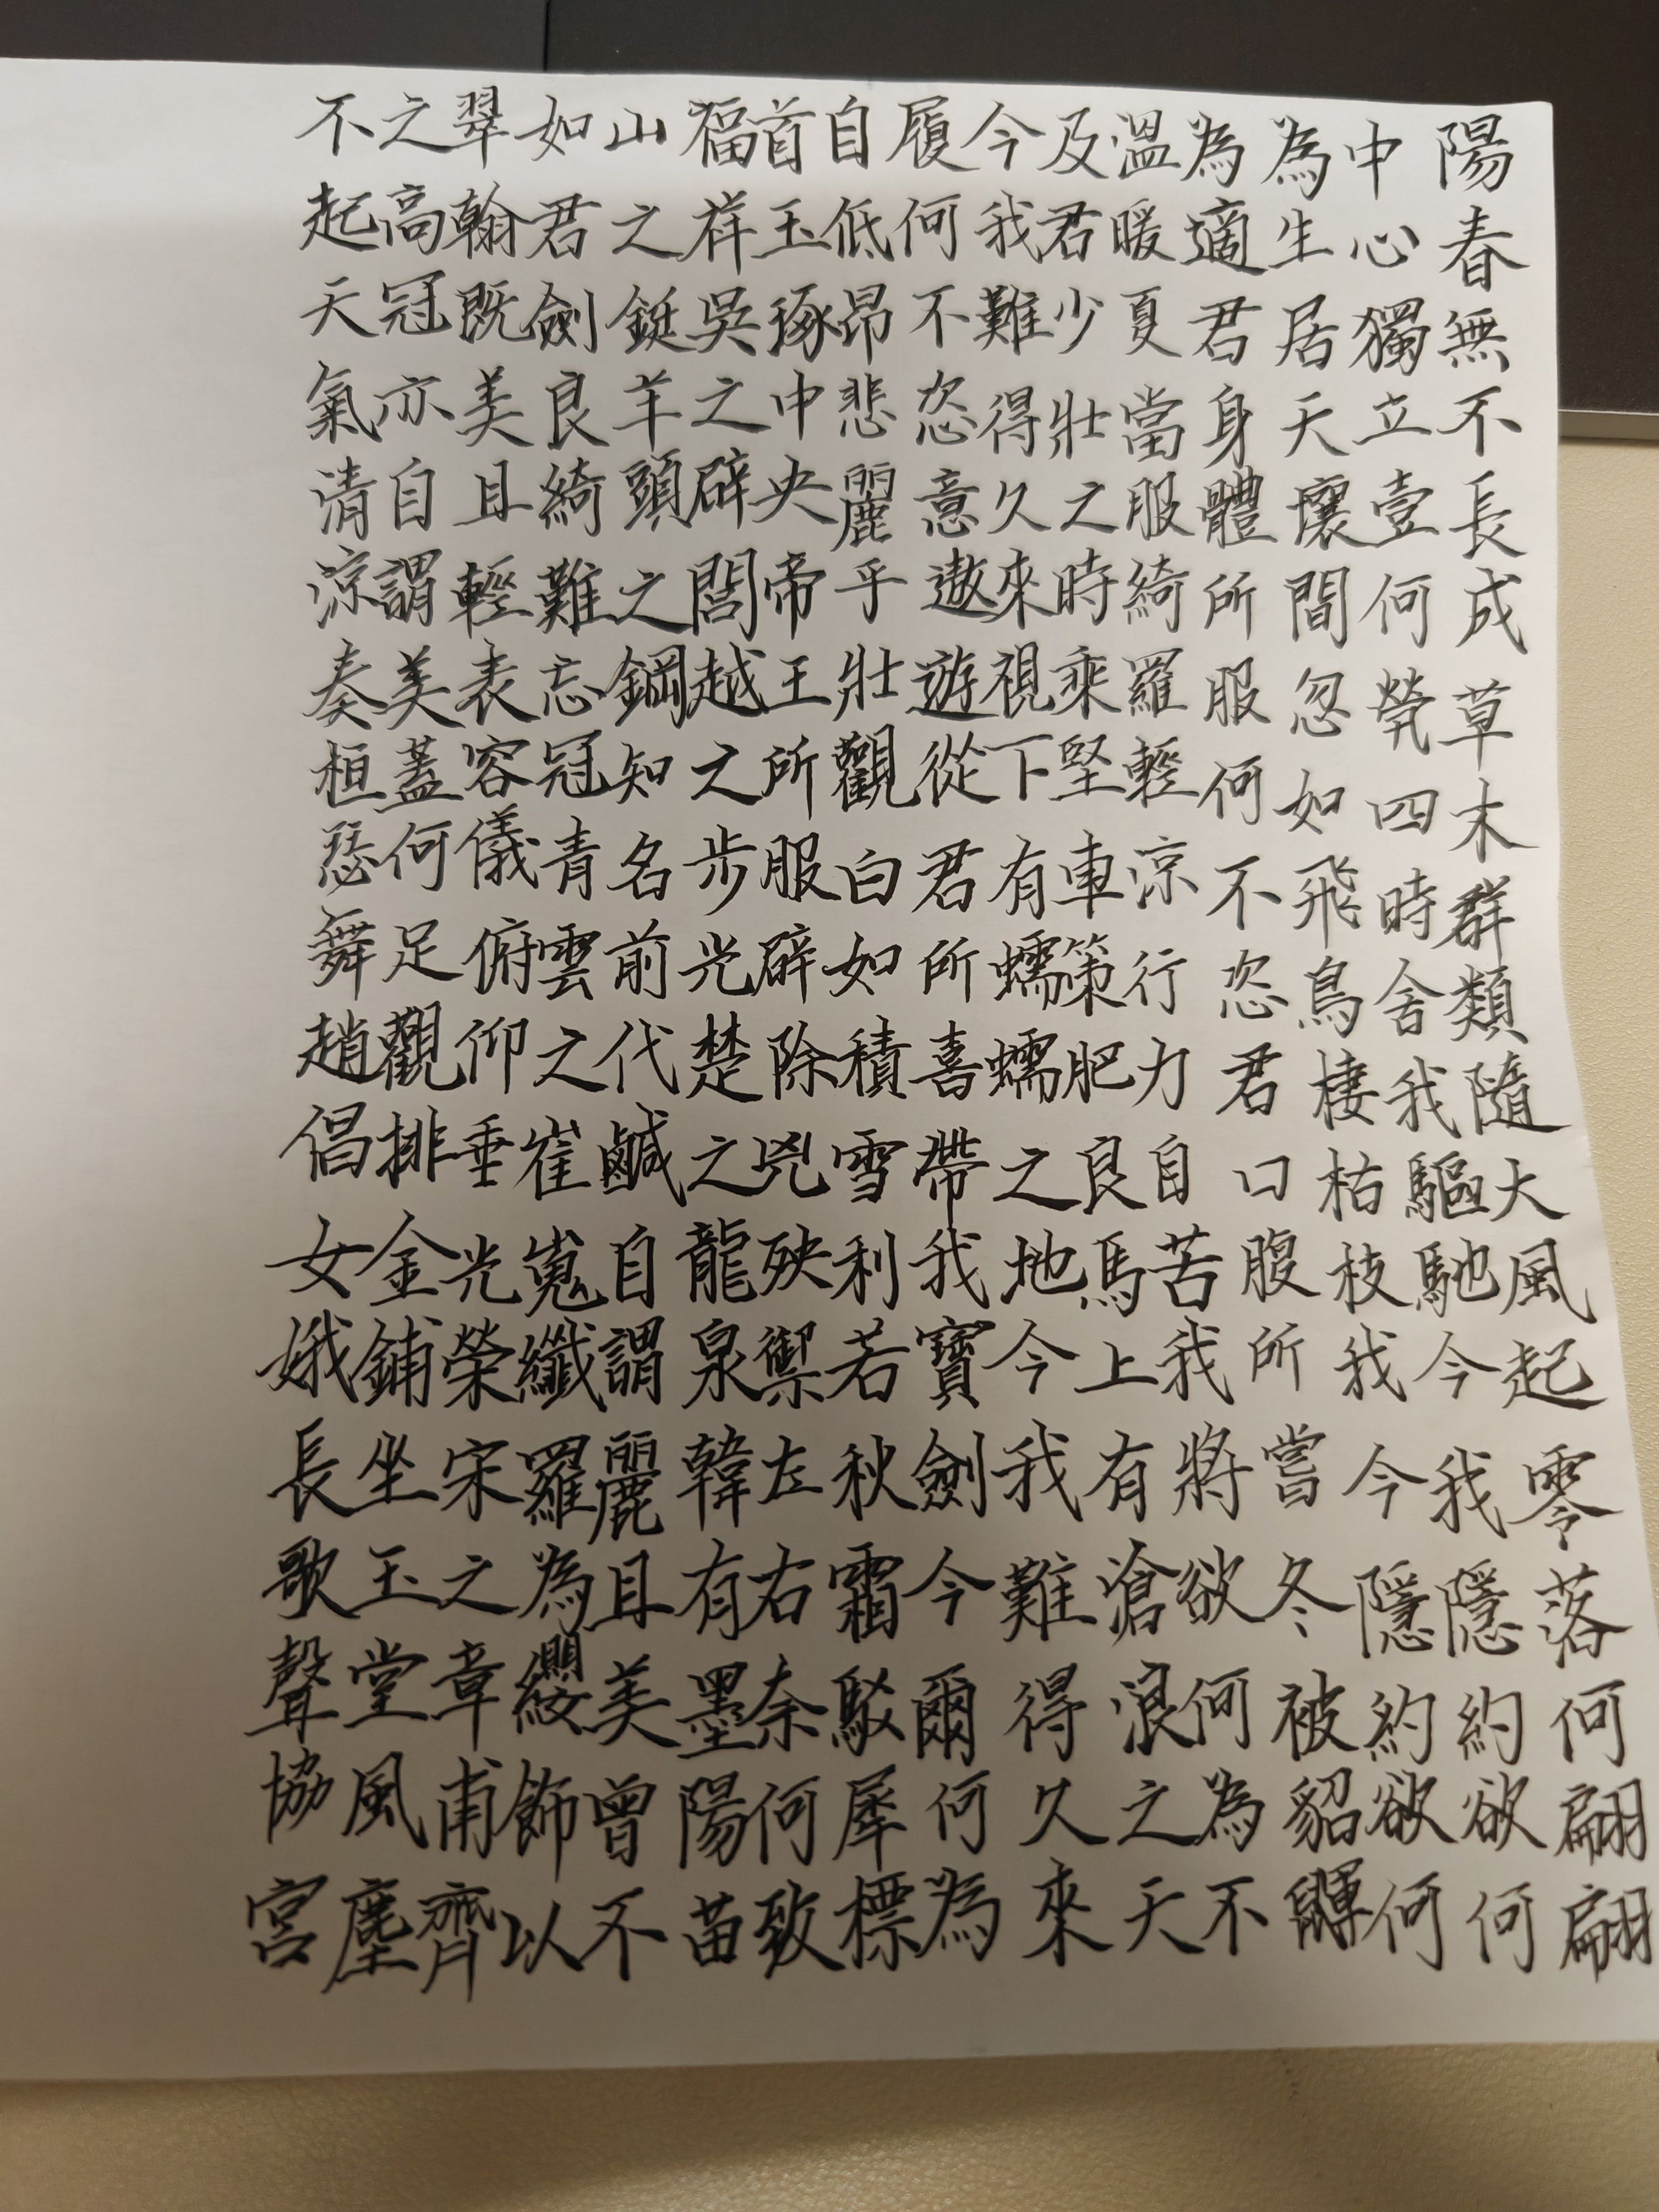 陽春無不長成草木群類隨大風起零落何翩翩
中心獨立壹何煢四時舍我驅馳今我隱約欲何
為生居天壤間忽如飛鳥棲枯枝我今隱約欲何
為適君身體所服何不恣君口腹所嘗冬被貂鼲
溫暖夏當服綺羅輕涼行力自苦我將欲何為不
及君少壯之時乘堅車策肥良馬上有滄浪之天
今我難得久來視下有蠕蠕之地今我難得久來
履何不恣意遨遊從君所喜帶我寶劍今爾何為
自低昂悲麗乎壯觀白如積雪利若秋霜駁犀標
首玉琢中央帝王所服辟除兇殃禦左右奈何致
福祥吳之辟閭越之步光楚之龍泉韓有墨陽苗
山之鋌羊頭之鋼知名前代鹹自謂麗且美曾不
如君劍良綺難忘冠青雲之崔嵬纖羅為纓飾以
翠翰既美且輕表容儀俯仰垂光榮宋之章甫齊
之高冠亦自謂美蓋何足觀排金鋪坐玉堂風塵
不起天氣清涼奏桓瑟舞趙倡女娥長歌聲協宮